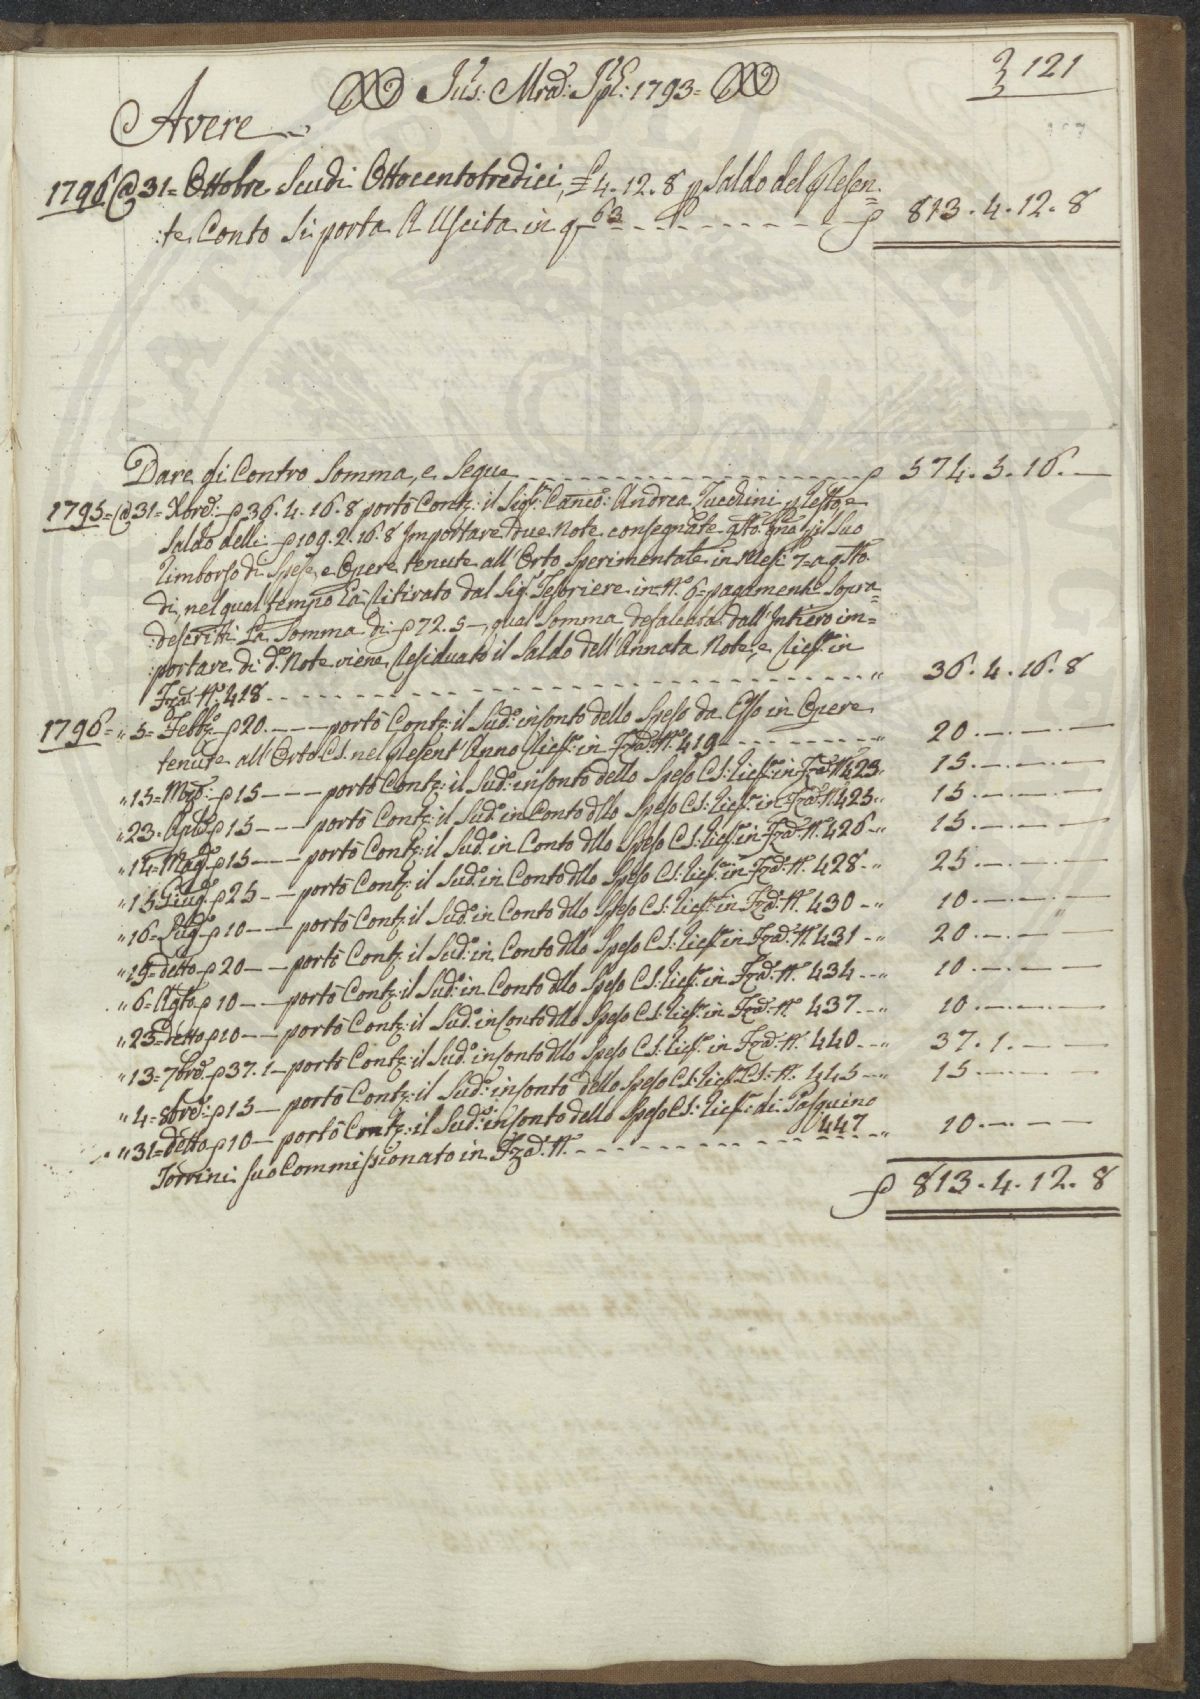 Jus: Mrd: Spl: 1793=
121
Avere
1796 @ 31= Ottobre Scudi Ottocentotredici, £ 4.12.8 p Saldo del presen=
:te Conto si porta A Uscita in q 63 813.4.12.8
Dare di Contro Somma, e Segue 574.5.16.—
1795= @ 31= Xbre: 36.4.16.8 portò Contz: il Sigr: Canco: Andrea Zucchini p Resto, e
Saldo delli 109.2.16.8 Importare due Note consegnate il Suo
Rimborso di Spese, e Opere tenute all'Orto Sperimentale in Mesi 7= a gsto
dì, nel qual tempo Ha Ritirato dal Sigr: Tesoriere in N°. 6= pagamenti Sopra=
:descritti La Somma di 72.5—, qual Somma defalcata dall'Intiero im=
:portare di de. Note viene Residuato il Saldo dell'Annata Note, e Ricer. in
Fzad: N°. 418 „ 36.4.16.8
1796= „ 5= Febbo: 20.— portò Contz: il Sudo: in Conto dello Speso da Esso in Opere
tenute all'Orto C.S. nel present'Anno Ricer. in Fzad: N°. 419 „ 20.—.—.—
„ 15= Mzo: 15 — portò Contz: il Sudo: in Conto dello Speso C.S: Ricer: in Fzad: N°. 423 „ 15.—.—.—
„ 23= Aple 15 — portò Contz: il Sudo: in Conto dllo Speso C.S: Ricer. in Fzad: N°. 425 „ 15.—.—.—
„ 14= Mago 15 — portò Contz: il Sudo: in Conto dllo Speso C.S: Ricer. in Fzad: N°. 426 „ 15.—.—.—
„ 15 Giug: 25 — portò Contz: il Sudo: in Conto dllo Speso C.S: Ricer: in Fzad: N°. 428 „ 25.—.—.—
„ 16= Lugo 10 — portò Contz: il Sudo: in Conto dllo Speso C.S: Ricer: in Fzad: N°. 430 „ 10.—.—.—
„ 19= detto 20 — portò Contz: il Sudo: in Conto dllo Speso C.S: Ricer. in Fzad: N°. 431 „ 20.—.—.—
„ 6= Agto 10 — portò Contz: il Sudo: in Conto dllo Speso C.S: Ricer. in Fzad: N°. 434 „ 10.—.—.—
„ 23= detto 10 — portò Contz: il Sudo: in Conto dllo Speso C.S: Ricer. in Fzad: N°. 437 „ 10.—.—.—
„ 13= 7bre 37.1— portò Contz: il Sudo: in Conto dllo Speso C.S: Ricer. in Fzad: N°. 440 „ 37.1.—.—
„ 4= 8bre: 15 — portò Contz: il Sudo: in Conto dello Speso C.S: Ricer. C.S: N°. 445 „ 15.—.—.—
„ 31= detto 10 — portò Contz: il Sudo: in Conto dello Speso C.S: Ricer: di Pasquino
Torrini suo Commissionato in Fzad: N°. 447 „ 10.—.—.—
813.4.12.8